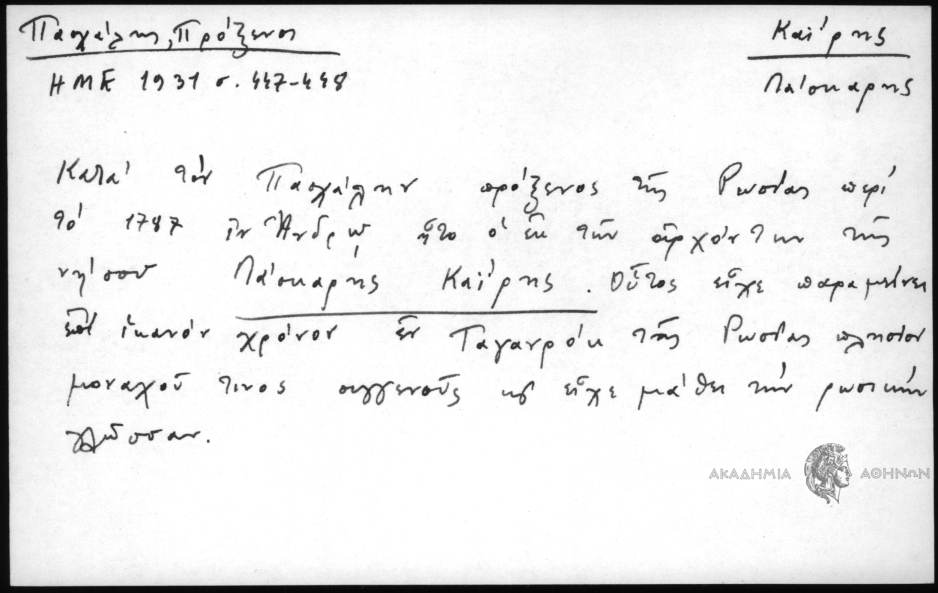 Πασχάλης, Πρόξενος
Καΐρης
ΗΜΕ 1931 σ. 447-448
Λάσκαρης
Κατά τόν Πασχάλην πρόξενος τῆς Ρωσίας περί
τό 1787 ἐν Ἄνδρῳ ἦτο ὁ ἐκ τῶν ἀρχόντων τῆς
νήσου Λάσκαρης Καΐρης. Οὗτος εἶχε παραμείνει
ἐπί ἱκανόν χρόνον ἐν Ταγανρόκ τῆς Ρωσίας πλησίον
μοναχοῦ τινος συγγενοῦς κ εἶχε μάθει τήν ρωσικήν
γλῶσσαν.
ΑΚΑΔΗΜΙΑ ΑΘΗΝΩΝ